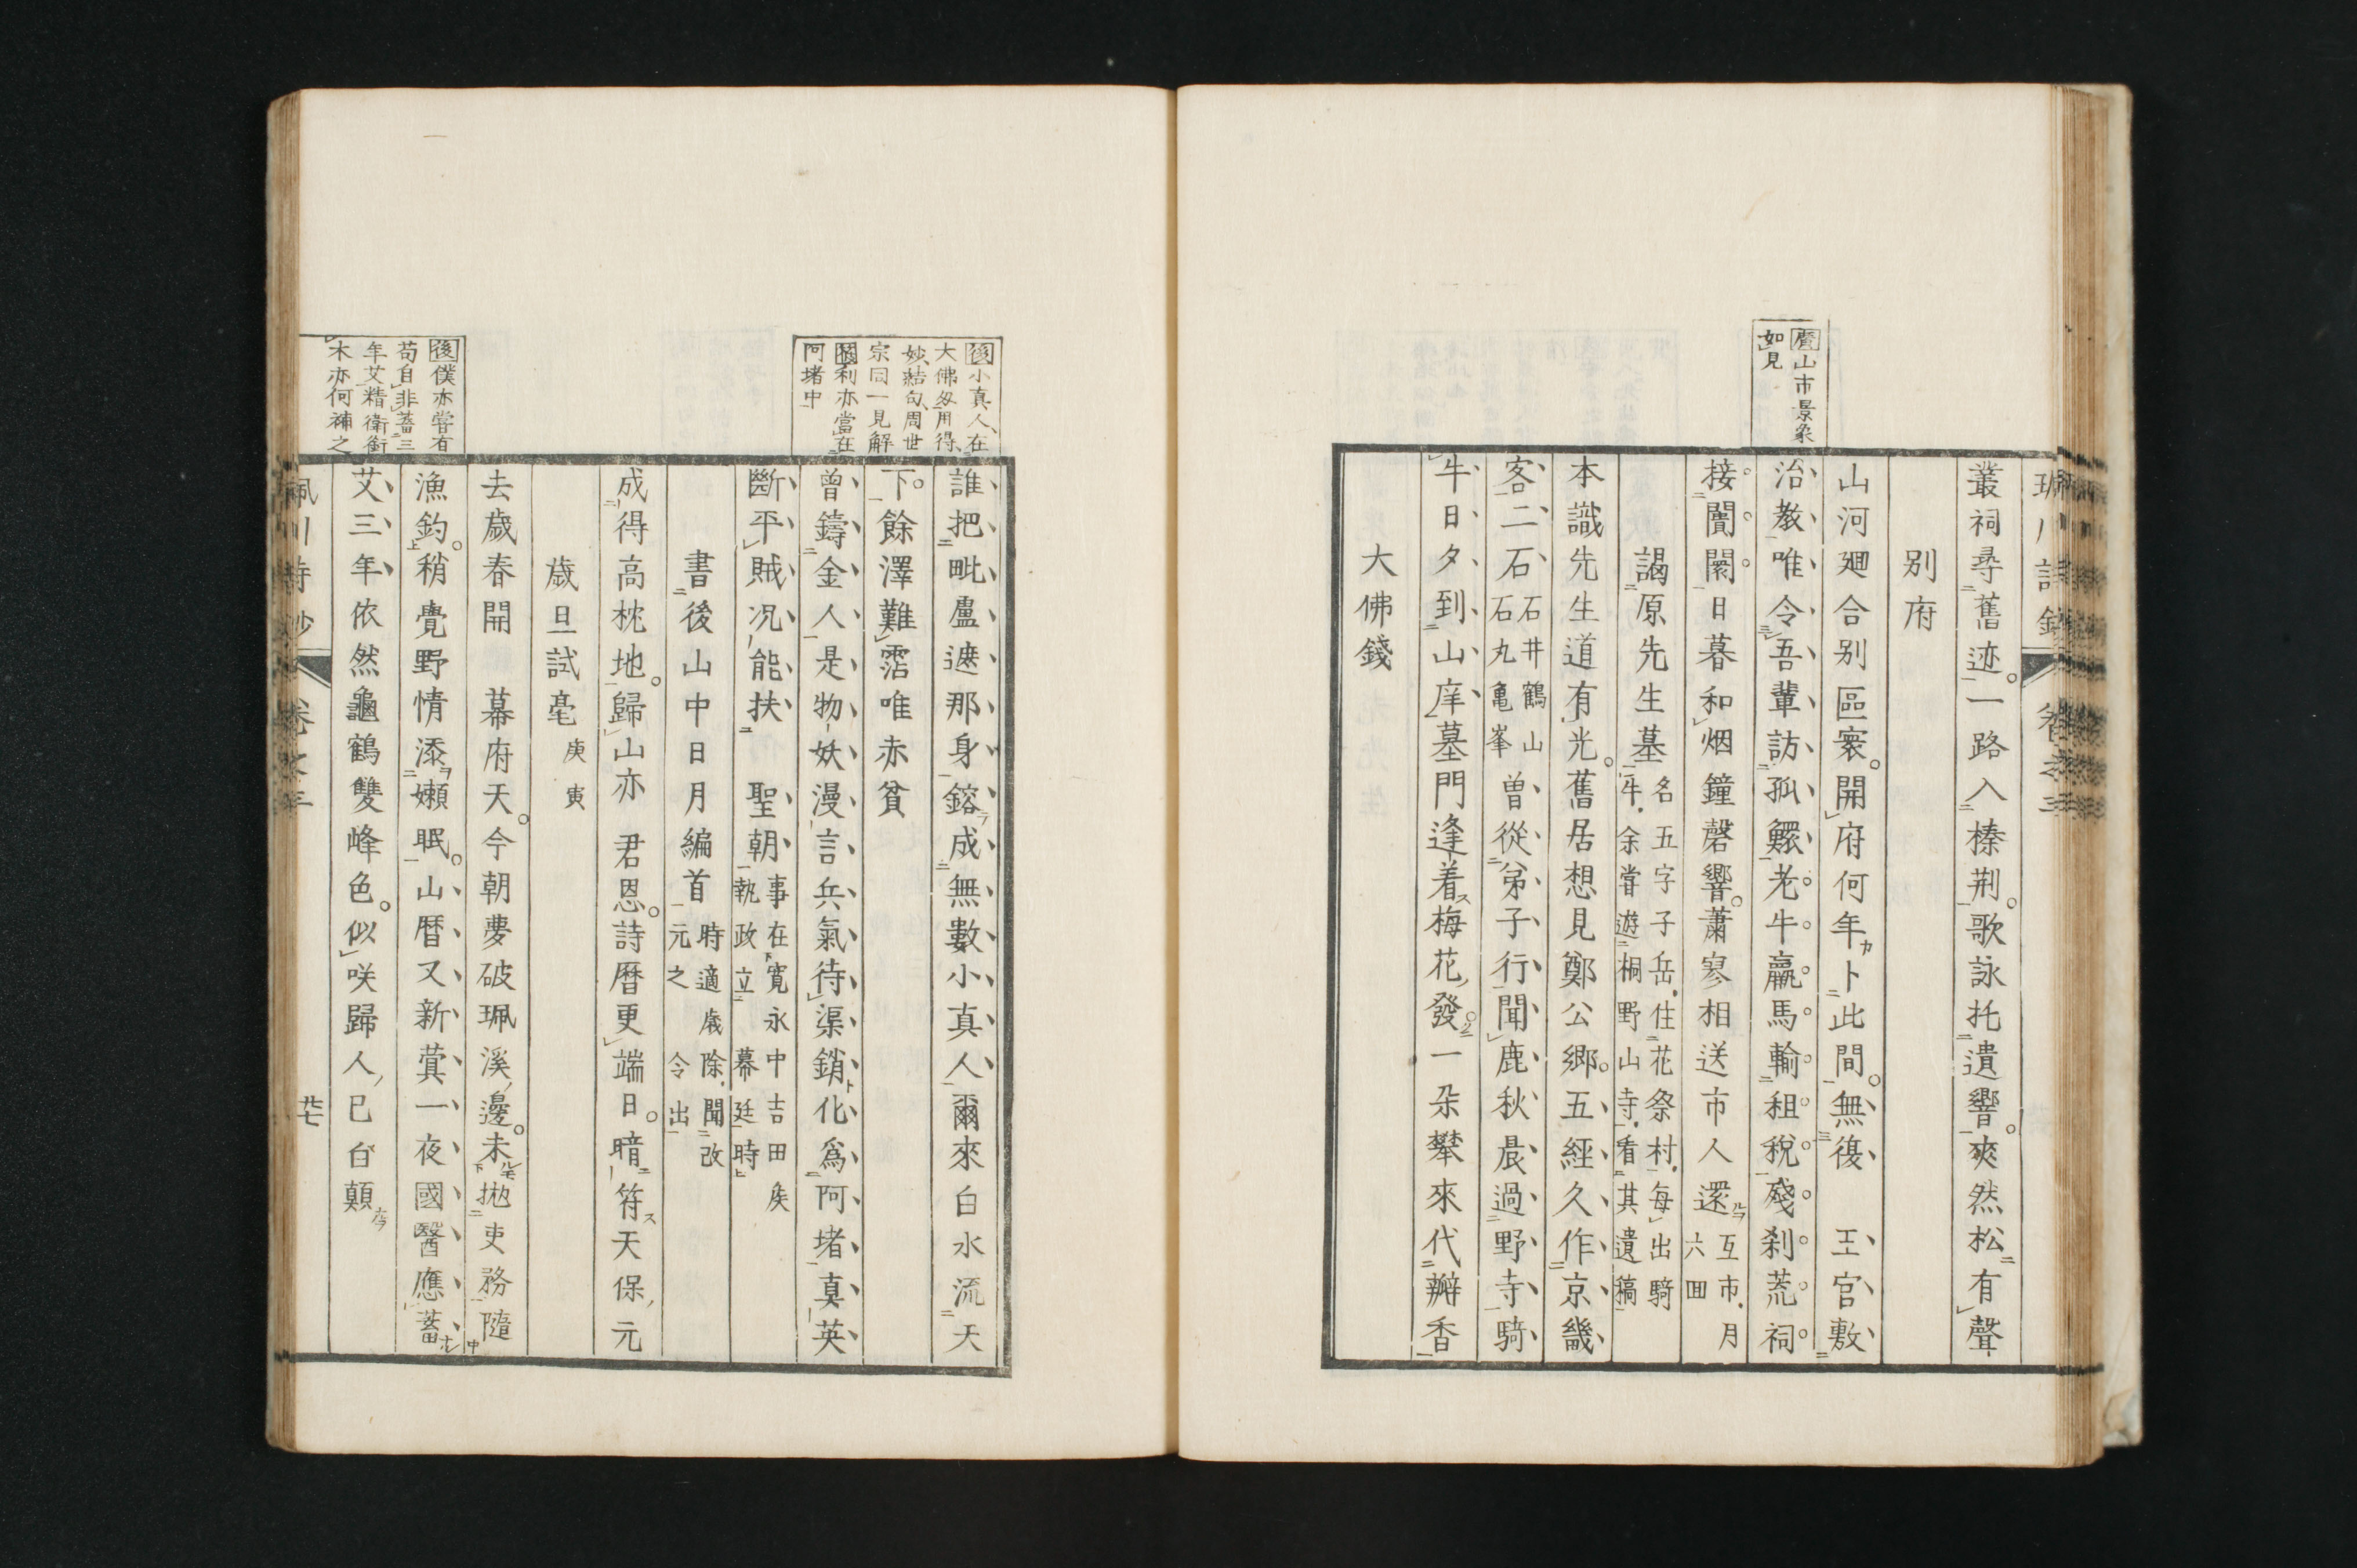 暦山市景象
如見
叢祠尋舊迹一路入榛荆歌詠托遺響爽然松有聲
別府
山河廻合別區寰開府何年卜此間無復 王宮敷
治教唯令吾輩訪孤鰥老牛羸馬輸租税殘刹荒祠
接闤闠日暮和烟鐘磬響蕭寥相送市人還互市月
六回
謁原先生墓名五字子岳住花祭村每出騎
牛余甞遊桐野山寺看其遺稿
本識先生道有光舊居想見鄭公郷五經久作京畿
客二石石井鶴山
石丸亀峯曾從弟子行聞鹿秋晨過野寺騎
牛日夕到山庠墓門逢着梅花發一朶攀來代瓣香
大佛錢
後小真人在
大佛匆用得
妙結句周世
宗同一見解
利亦當在
阿堵中
誰把毗盧遮那身鎔成無數小真人爾來白水流天
下餘澤難霑唯赤貧
曾鑄金人是物妖漫言兵氣待渠銷化爲阿堵真英
斷平賊况能扶 聖朝事在寛永中吉田矦
執政立幕廷時
書後山中日月編首時適歳除聞改
元之令出
成得高枕地歸山亦 君恩詩暦更端日暗符天保元
歳旦試毫庚寅
後僕亦甞有
苟自非蓄三
年艾精衛銜
木亦何補之
去歳春開 幕府天今朝夢破珮溪邊未抛吏務隨
漁釣稍覺野情添嬾眠山暦又新蓂一夜國醫應蓄
艾三年依然龜鶴雙峰色似咲歸人已白顛
珮川詩鈔 卷之三 廿七